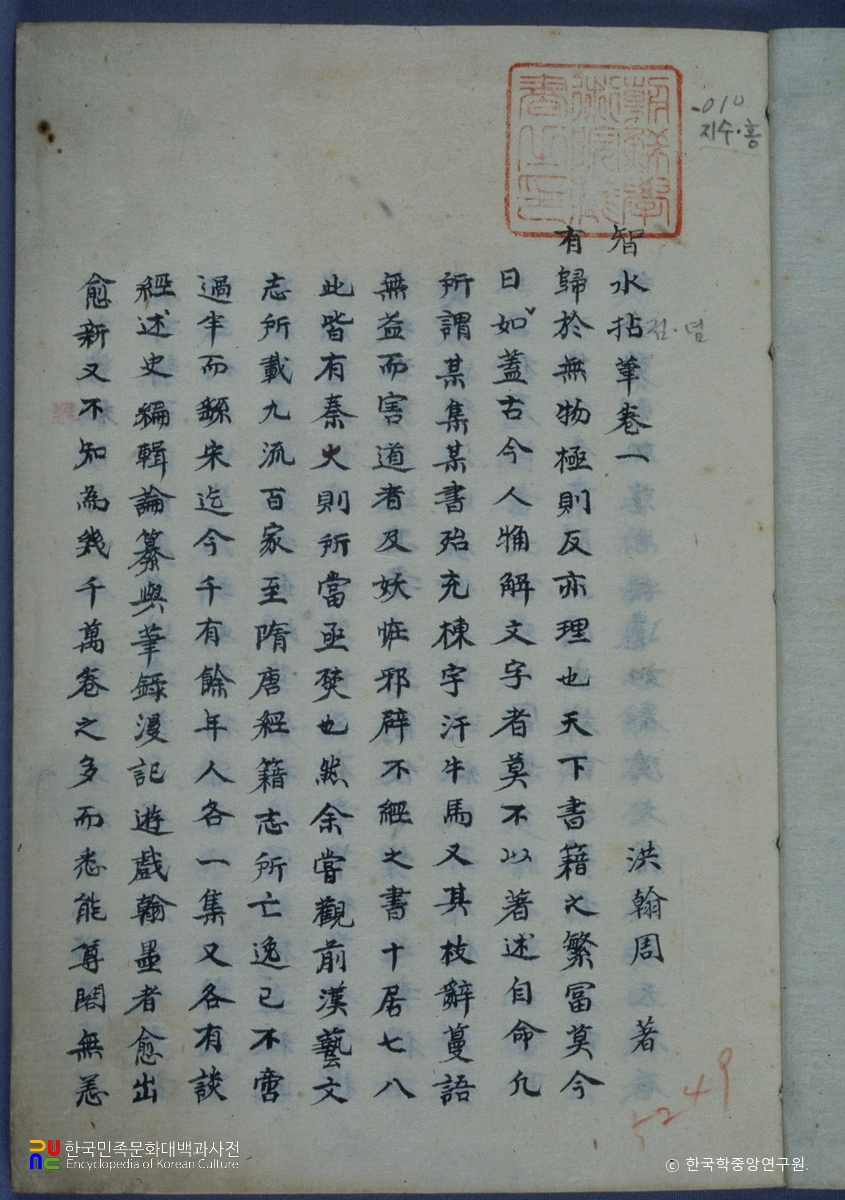 智水拈筆卷一 洪翰周 著
有歸於無物極則反亦理也天下書籍之繁冨莫今
日如蓋古今人稍解文字者莫不以著述自命凡
所謂某集某書殆充棟宇汗牛馬又其枝辭蔓語
無益而害道者及妖怪邪辟不經之書十居七八
此皆有秦火則所當亟焚也然余嘗觀前漢藝文
志所載九流百家至隋唐經籍志所亡逸已不啻
過半而繇宋迄今千有餘年人各一集又各有談
經述史編輯論纂與筆錄漫記遊戲翰墨者愈出
愈新又不知為幾千萬卷之多而悉能尊閣無恙
朝鮮學
術院藏
書之印
-010
지수·홍
점·념
5249
한국민족문화대백과사전
Encyclopedia of Korean Culture
© 한국학중앙연구원.